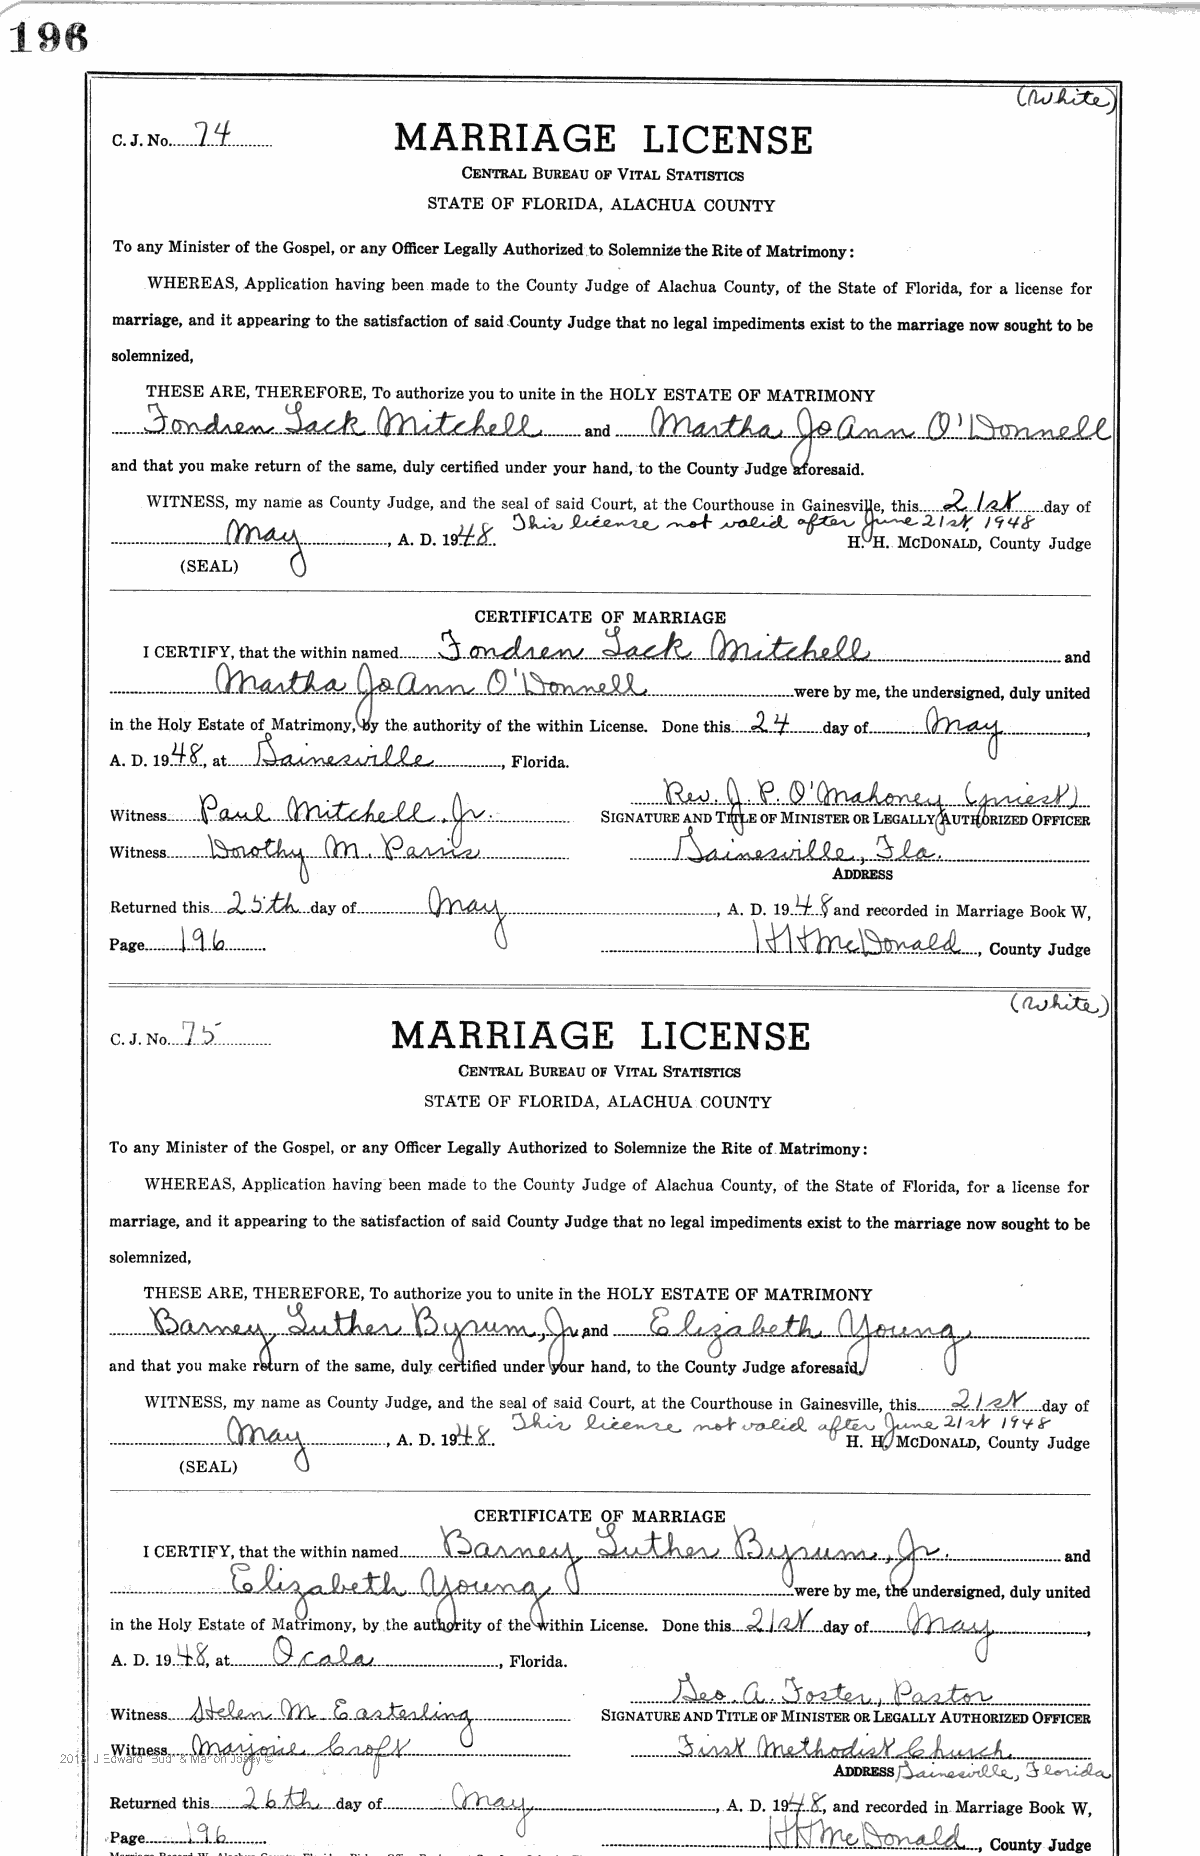 196
(White)
C. J. No. 74
MARRIAGE LICENSE
CENTRAL BUREAU OF VITAL STATISTICS
STATE OF FLORIDA, ALACHUA COUNTY
To any Minister of the Gospel, or any Officer Legally Authorized to Solemnize the Rite of Matrimony:
WHEREAS, Application having been made to the County Judge of Alachua County, of the State of Florida, for a license for
marriage, and it appearing to the satisfaction of said County Judge that no legal impediments exist to the marriage now sought to be
solemnized,
THESE ARE, THEREFORE, To authorize you to unite in the HOLY ESTATE OF MATRIMONY
Fondren Jack Mitchell and Martha JoAnn O'Donnell
and that you make return of the same, duly certified under your hand, to the County Judge aforesaid.
WITNESS, my name as County Judge, and the seal of said Court, at the Courthouse in Gainesville, this 21st day of
This license not valid after June 21st, 1948
May, A. D. 1948. H. H. MCDONALD, County Judge
(SEAL)
CERTIFICATE OF MARRIAGE
I CERTIFY, that the within named Fondren Jack Mitchell and
Martha JoAnn O'Donnell were by me, the undersigned, duly united
in the Holy Estate of Matrimony, by the authority of the within License. Done this 24 day of May,
A. D. 1948, at Gainesville, Florida.
Rev. J. P. O'Mahoney (priest)
Witness Paul Mitchell, Jr. SIGNATURE AND TITLE OF MINISTER OR LEGALLY AUTHORIZED OFFICER
Witness Dorothy M. Parris Gainesville, Fla.
ADDRESS
Returned this 25th day of May, A. D. 1948 and recorded in Marriage Book W,
Page 196 H H McDonald, County Judge
(White)
C. J. No. 75
MARRIAGE LICENSE
CENTRAL BUREAU OF VITAL STATISTICS
STATE OF FLORIDA, ALACHUA COUNTY
To any Minister of the Gospel, or any Officer Legally Authorized to Solemnize the Rite of Matrimony:
WHEREAS, Application having been made to the County Judge of Alachua County, of the State of Florida, for a license for
marriage, and it appearing to the satisfaction of said County Judge that no legal impediments exist to the marriage now sought to be
solemnized,
THESE ARE, THEREFORE, To authorize you to unite in the HOLY ESTATE OF MATRIMONY
Barney Luther Byrum, Jr. and Elizabeth Young
and that you make return of the same, duly certified under your hand, to the County Judge aforesaid.
WITNESS, my name as County Judge, and the seal of said Court, at the Courthouse in Gainesville, this 21st day of
This license not valid after June 21st 1948
May, A. D. 1948. H. H. MCDONALD, County Judge
(SEAL)
CERTIFICATE OF MARRIAGE
I CERTIFY, that the within named Barney Luther Byrum, Jr. and
Elizabeth Young were by me, the undersigned, duly united
in the Holy Estate of Matrimony, by the authority of the within License. Done this 21st day of May,
A. D. 1948, at Ocala, Florida.
Geo. A. Foster, Pastor
Witness Helen M Easterling SIGNATURE AND TITLE OF MINISTER OR LEGALLY AUTHORIZED OFFICER
Witness Marjorie Croft First Methodist Church
J Edward "Bud" & Marion Josey ©
ADDRESS Gainesville, Florida
Returned this 26th day of May, A. D. 1948, and recorded in Marriage Book W,
Page 196 H H McDonald, County Judge